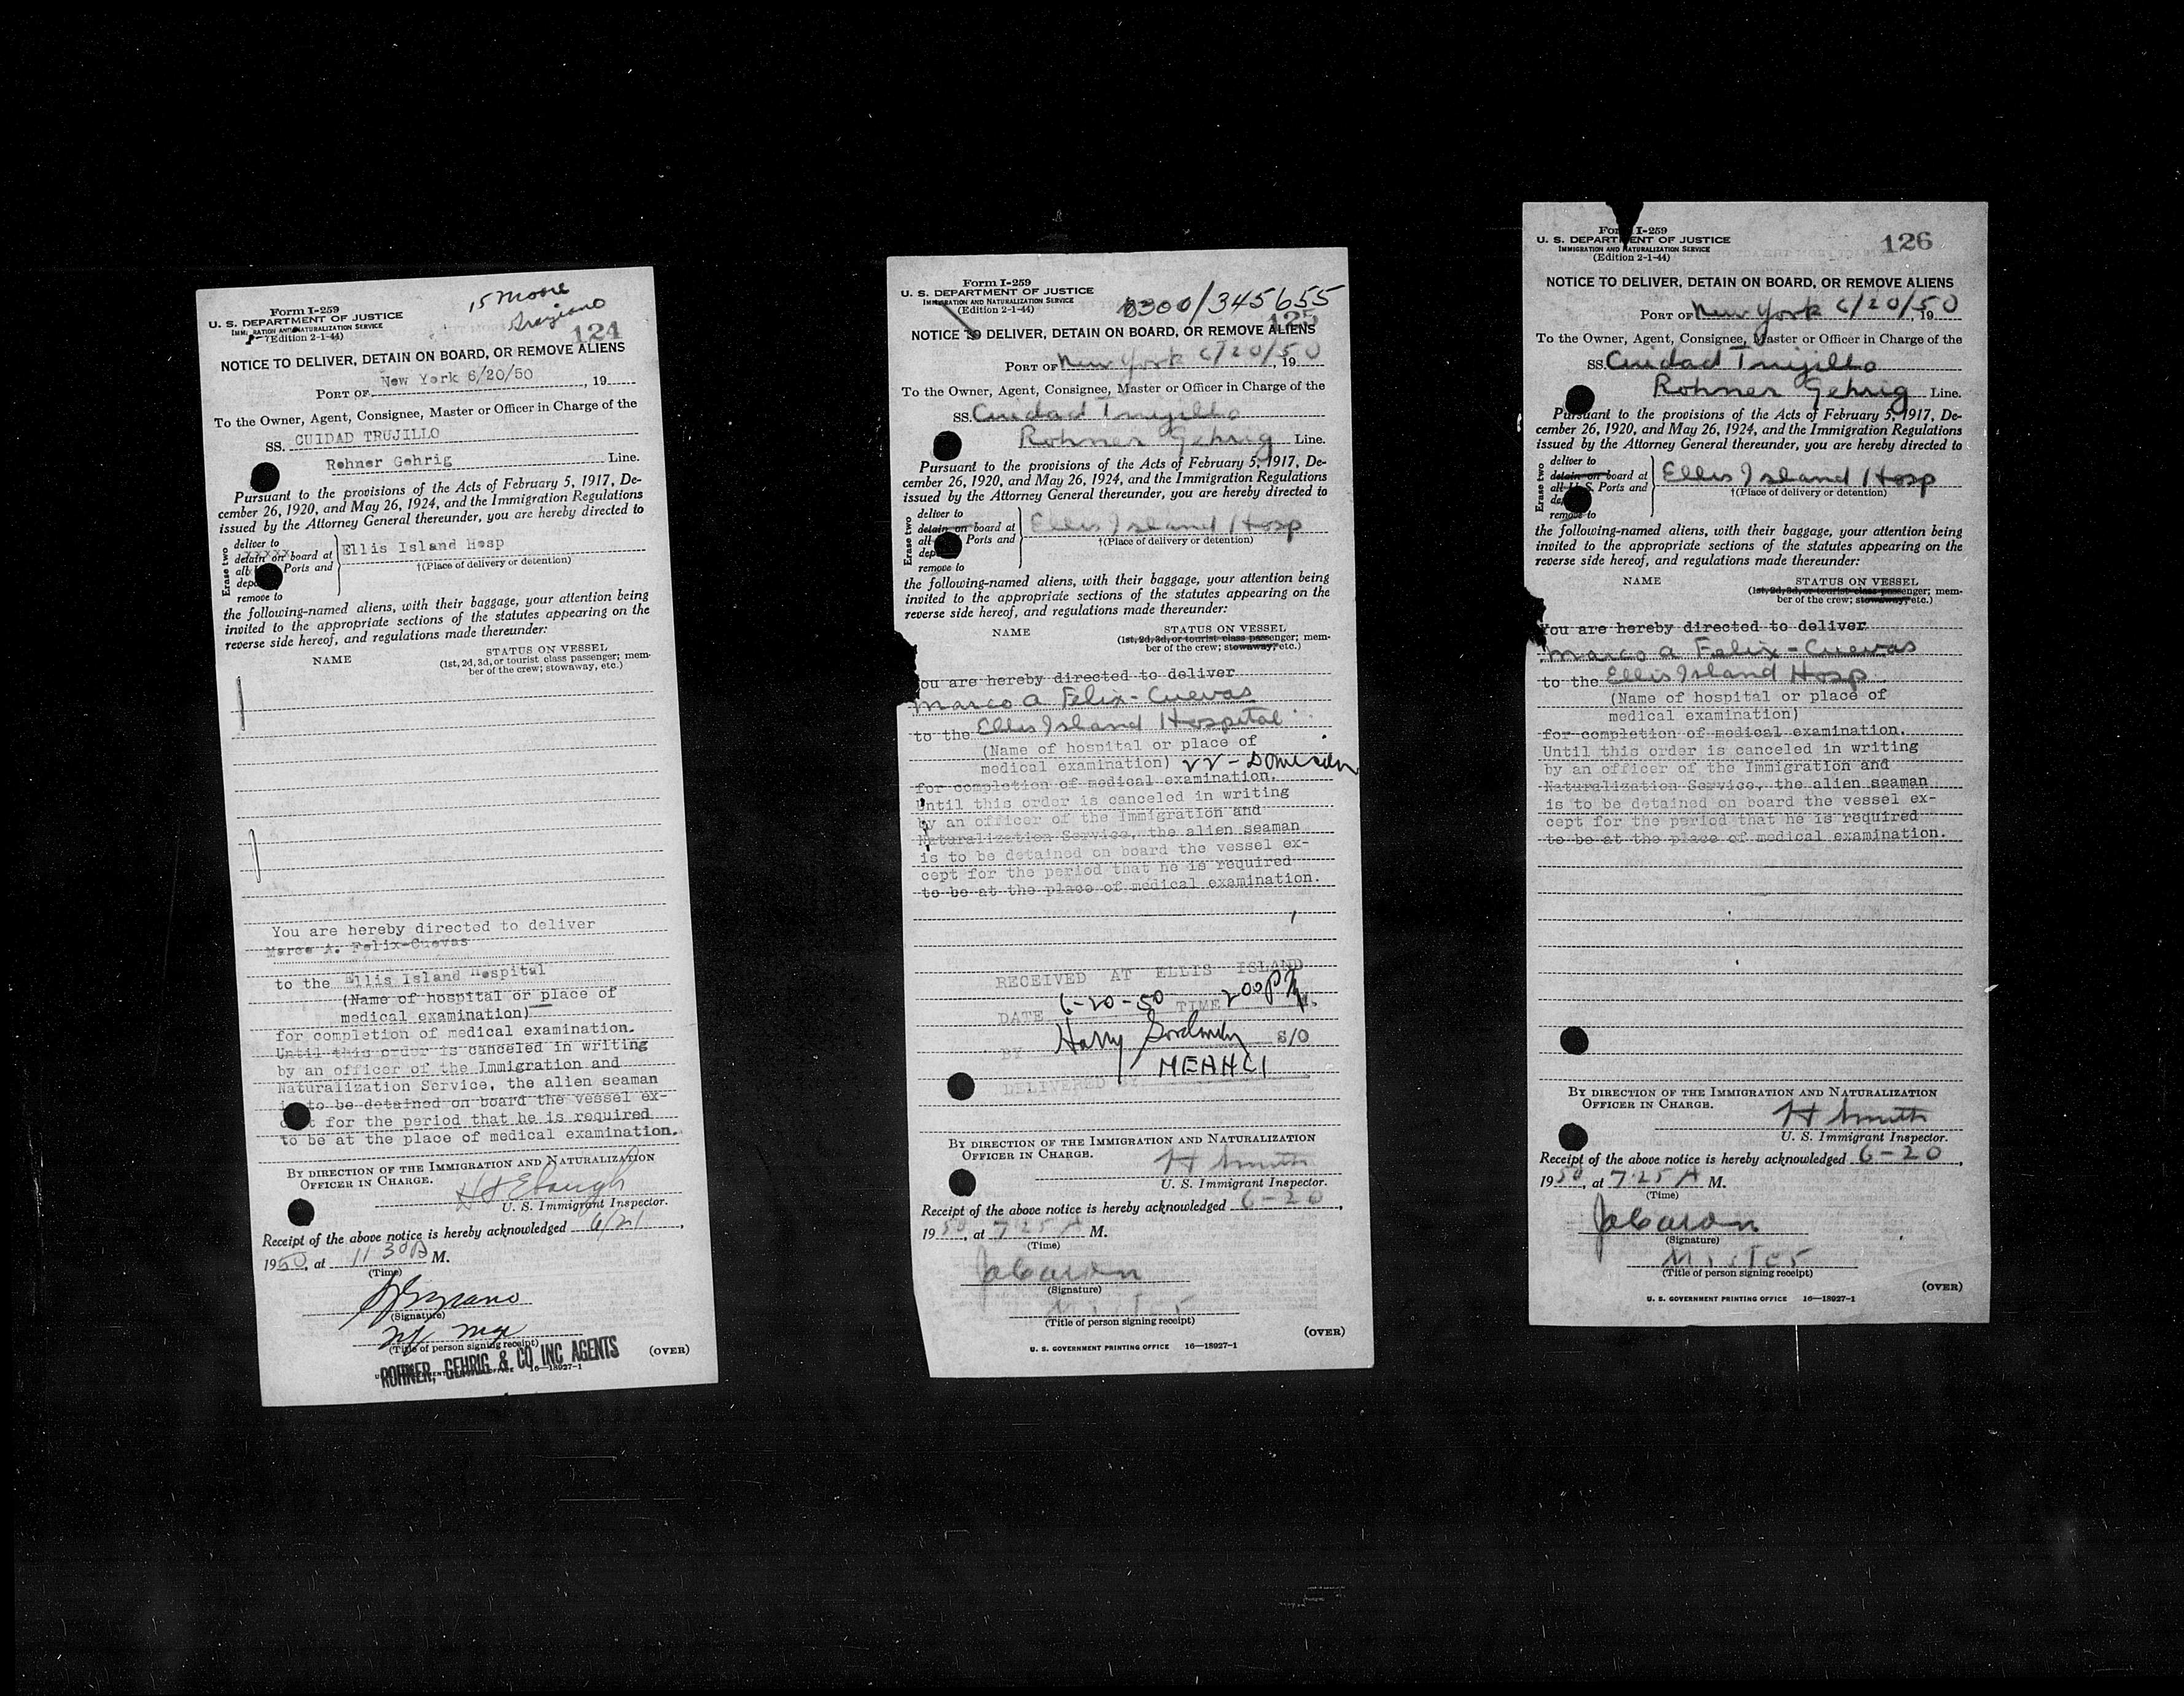 Form I-259
U. S. DEPARTMENT OF JUSTICE
IMMIGRATION AND NATURALIZATION SERVICE
(Edition 2-1-44)
15 Moore
Graziano
124
NOTICE TO DELIVER, DETAIN ON BOARD, OR REMOVE ALIENS
PORT OF New York 6/20/50, 19
To the Owner, Agent, Consignee, Master or Officer in Charge of the
SS. CUIDAD TRUJILLO
Rohner Gehrig Line.
Pursuant to the provisions of the Acts of February 5, 1917, De-
cember 26, 1920, and May 26, 1924, and the Immigration Regulations
issued by the Attorney General thereunder, you are hereby directed to
Erase two
deliver to
detain on board at
all Ports and
remove to
Ellis Island Hosp
†(Place of delivery or detention)
the following-named aliens, with their baggage, your attention being
invited to the appropriate sections of the statutes appearing on the
reverse side hereof, and regulations made thereunder:
NAME STATUS ON VESSEL
(1st, 2d, 3d, or tourist class passenger; mem-
ber of the crew; stowaway, etc.)
You are hereby directed to deliver
Marco A. Felix-Cuevas
to the Ellis Island Hospital
(Name of hospital or place of
medical examination)
for completion of medical examination.
Until this order is canceled in writing
by an officer of the Immigration and
Naturalization Service, the alien seaman
is to be detained on board the vessel ex-
cept for the period that he is required
to be at the place of medical examination.
BY DIRECTION OF THE IMMIGRATION AND NATURALIZATION
OFFICER IN CHARGE.
U. S. Immigrant Inspector.
Receipt of the above notice is hereby acknowledged 6/21,
1950, at 11 30 A M.
(Time)
(Signature)
(Title of person signing receipt)
ROHNER, GEHRIG & CO INC AGENTS
16—18927-1
(OVER)
Form I-259
U. S. DEPARTMENT OF JUSTICE
IMMIGRATION AND NATURALIZATION SERVICE
(Edition 2-1-44)
0300/345655
125
NOTICE TO DELIVER, DETAIN ON BOARD, OR REMOVE ALIENS
PORT OF New York 6/20/50, 19
To the Owner, Agent, Consignee, Master or Officer in Charge of the
SS. Cuidad Trujillo
Rohner Gehrig Line.
Pursuant to the provisions of the Acts of February 5, 1917, De-
cember 26, 1920, and May 26, 1924, and the Immigration Regulations
issued by the Attorney General thereunder, you are hereby directed to
Erase two
deliver to
detain on board at
all Ports and
remove to
Ellis Island Hosp
†(Place of delivery or detention)
the following-named aliens, with their baggage, your attention being
invited to the appropriate sections of the statutes appearing on the
reverse side hereof, and regulations made thereunder:
NAME STATUS ON VESSEL
(1st, 2d, 3d, or tourist class passenger; mem-
ber of the crew; stowaway, etc.)
You are hereby directed to deliver
Marco A Felix-Cuevas
to the Ellis Island Hospital
(Name of hospital or place of
medical examination)
for completion of medical examination.
Until this order is canceled in writing
by an officer of the Immigration and
Naturalization Service, the alien seaman
is to be detained on board the vessel ex-
cept for the period that he is required
to be at the place of medical examination.
RECEIVED AT ELLIS ISLAND
DATE 6-20-50 TIME 2 00 P M.
BY Harry S/O
DELIVERED BY
BY DIRECTION OF THE IMMIGRATION AND NATURALIZATION
OFFICER IN CHARGE.
H Smith
U. S. Immigrant Inspector.
Receipt of the above notice is hereby acknowledged 6-20,
1950, at 7 25 A M.
(Time)
(Signature)
(Title of person signing receipt)
(OVER)
U. S. GOVERNMENT PRINTING OFFICE 16—18927-1
Form I-259
U. S. DEPARTMENT OF JUSTICE
IMMIGRATION AND NATURALIZATION SERVICE
(Edition 2-1-44)
126
NOTICE TO DELIVER, DETAIN ON BOARD, OR REMOVE ALIENS
PORT OF New York 6/20/50, 19
To the Owner, Agent, Consignee, Master or Officer in Charge of the
SS. Cuidad Trujillo
Rohner Gehrig Line.
Pursuant to the provisions of the Acts of February 5, 1917, De-
cember 26, 1920, and May 26, 1924, and the Immigration Regulations
issued by the Attorney General thereunder, you are hereby directed to
Erase two
deliver to
detain on board at
all U. S. Ports and
remove to
Ellis Island Hosp
†(Place of delivery or detention)
the following-named aliens, with their baggage, your attention being
invited to the appropriate sections of the statutes appearing on the
reverse side hereof, and regulations made thereunder:
NAME STATUS ON VESSEL
(1st, 2d, 3d, or tourist class passenger; mem-
ber of the crew; stowaway, etc.)
You are hereby directed to deliver
Marco A Felix-Cuevas
to the Ellis Island Hosp
(Name of hospital or place of
medical examination)
for completion of medical examination.
Until this order is canceled in writing
by an officer of the Immigration and
Naturalization Service, the alien seaman
is to be detained on board the vessel ex-
cept for the period that he is required
to be at the place of medical examination.
BY DIRECTION OF THE IMMIGRATION AND NATURALIZATION
OFFICER IN CHARGE.
H Smith
U. S. Immigrant Inspector.
Receipt of the above notice is hereby acknowledged 6-20,
1950, at 7 25 A M.
(Time)
(Signature)
(Title of person signing receipt)
(OVER)
U. S. GOVERNMENT PRINTING OFFICE 16—18927-1